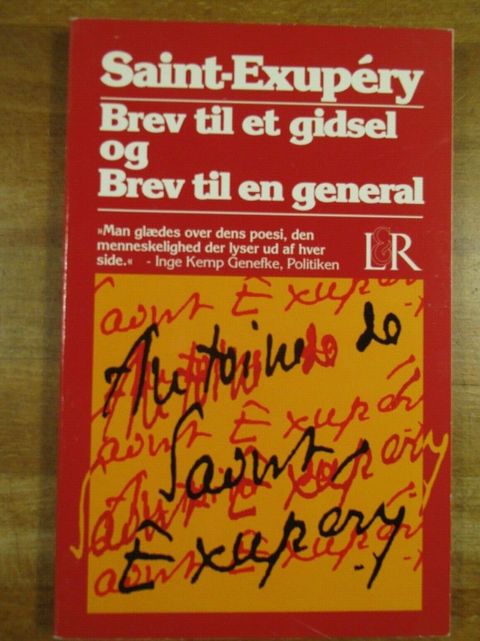 Saint-Exupéry
Brev til et gidsel
og
Brev til en general
»Man glædes over dens poesi, den
menneskelighed der lyser ud af hver
side.« - Inge Kemp Genefke, Politiken
L&R
Saint Exupéry
Antoine de
Saint Exupéry
Saint-
Exupéry